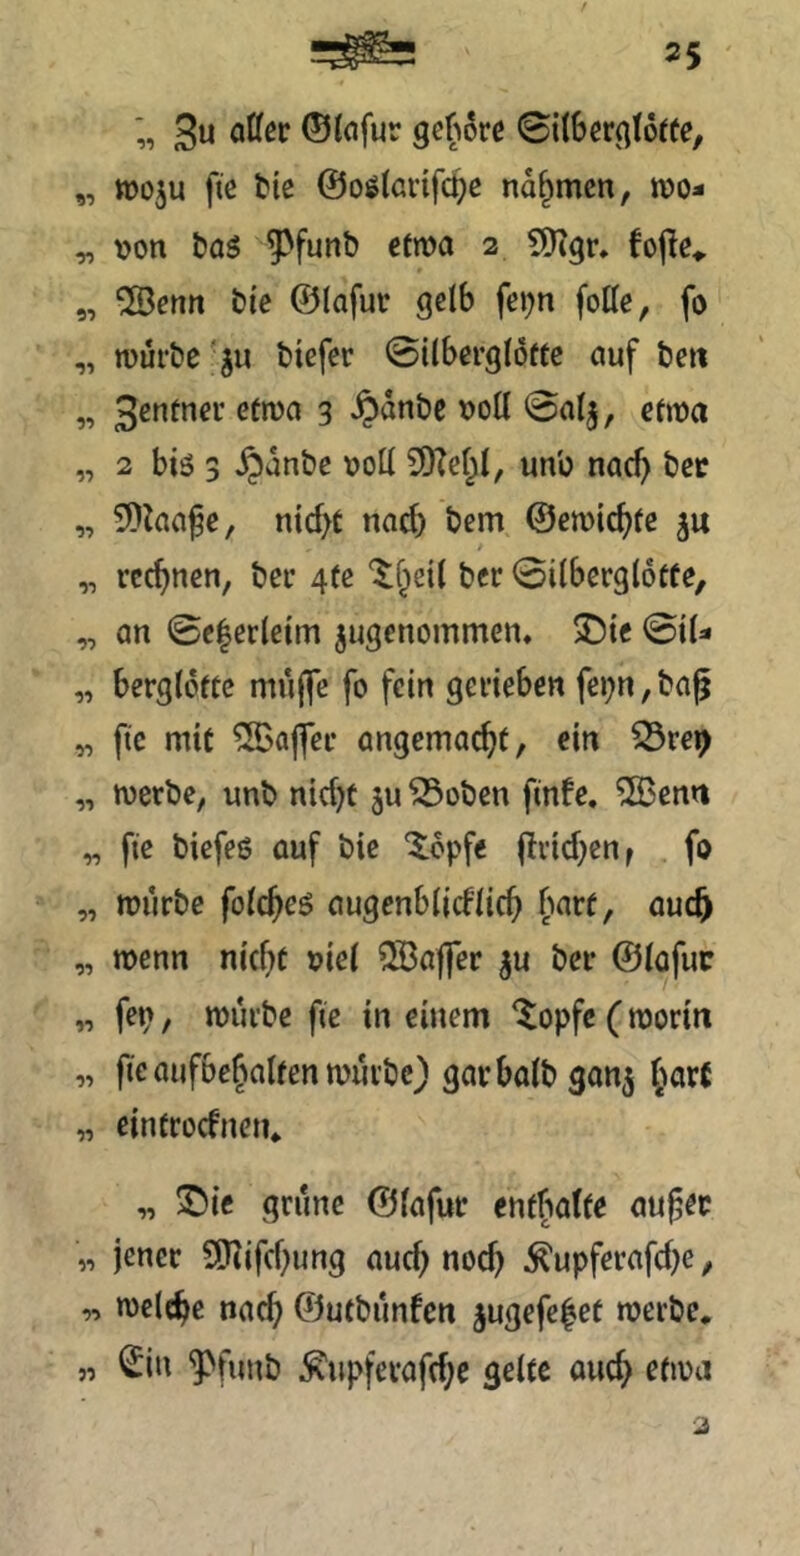 25
„ Zu aller Glasur gehöre Silberglötte,
„ wozu sie die Goslarische nähmen, wo-
„ von das Pfund etwa 2 Mgr. koste.
„ Wenn die Glasur gelb seyn solle, so
„ würde zu dieser Silberglötte auf den
„ Zentner etwa 3 Hände voll Salz, etwa
„ 2 bis 3 Hände voll Mehl, und nach der
„ Maaße, nicht nach dem Gewichte zu
„ rechnen, der 4te Theil der Silberglötte,
„ an Setzerleim zugenommen. Die Sil-
„ berglötte müsse so fein gerieben seyn, daß
„ sie mit Wasser angemacht, ein Brey
„ werde, und nicht zu Boden sinke. Wenn
„ sie dieses auf die Töpfe strichen, so
„ würde solches augenblicklich hart, auch
„ wenn nicht viel Wasser zu der Glasur
„ sey, würde sie in einem Topfe (worin
„ sie aufbehalten würde) gar bald ganz hart
„ eintrocknen.
„ Die grüne Glasur enthalte außer
„ jener Mischung auch noch Kupferasche,
„ welche nach Gutdünken zugesetzet werde.
„ Ein Pfund Kupferasche gelte auch etwa
2